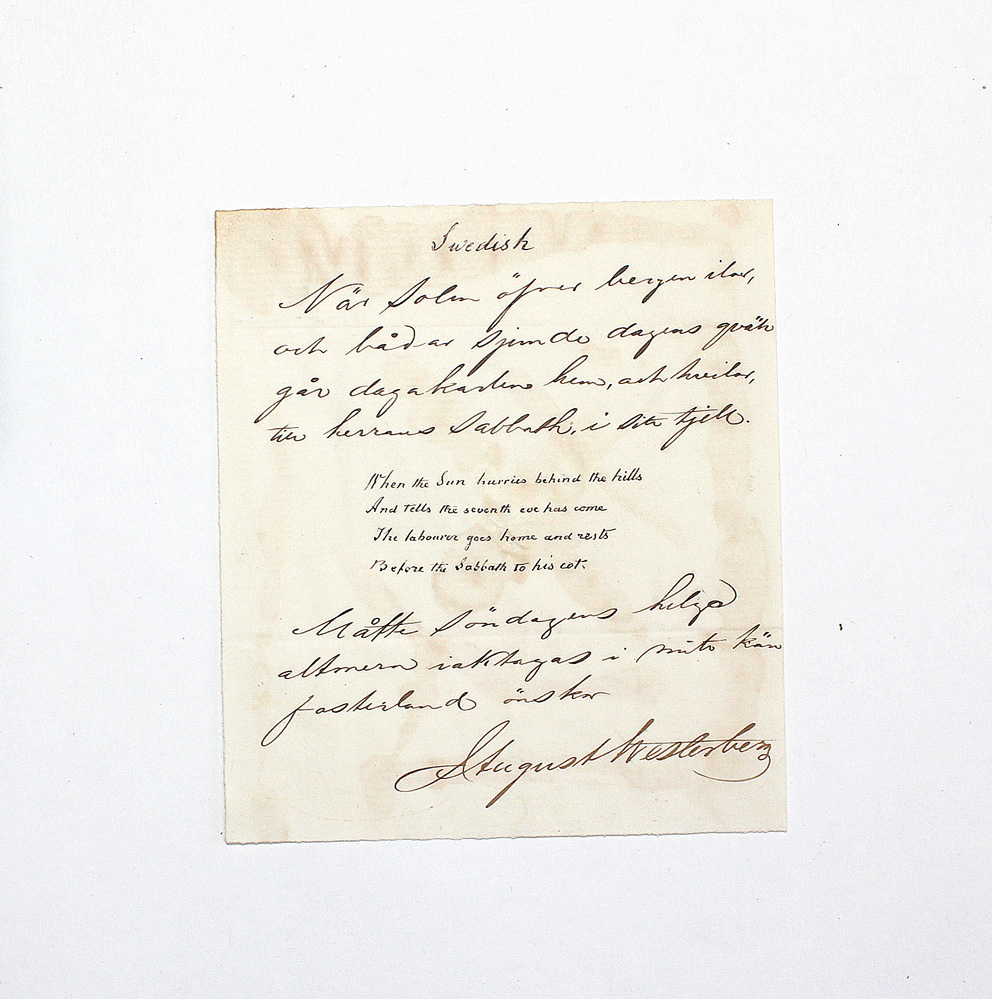 Swedish
När Solen öfver bergen ilar,
och bådar sjunde dagens qväll
går dagakarlen hem, och hvilar,
till herrans Sabbath, i sitt tjell.
When the Sun hurries behind the hills
And tells the seventh eve has come
The labourer goes home and rests
Before the Sabbath to his cot.
Måtte Söndagens helgd
altmera iakttagas i mitt kära
fosterland önskar
August Westerberg